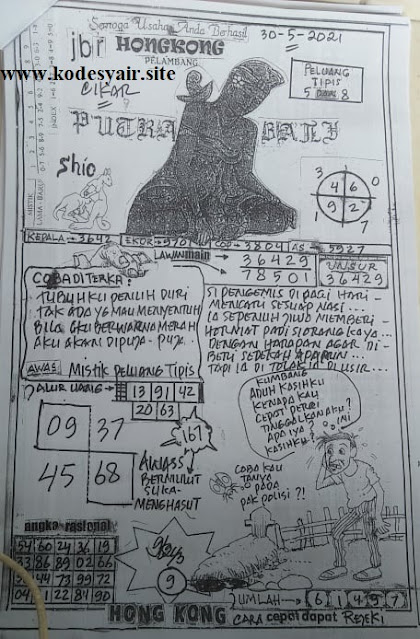 Semoga Usaha Anda Berhasil
jbr HONGKONG
PELAMBANG
30-5-2021
www.kodesyair.site
CIKAR
PELUANG
TIPIS
5 8
PUTRA BALI
Shio
3 0
4 6
9 2
1 7
KEPALA → 3642 EKOR → 970 COP → 3804 AS → 5927
LAWAN main
36429
78501
UNSUR
36429
COBA DITERKA :
TUBUHKU PENUH DURI
TAK ADA YG MAU MENYENTUH
BILA AKU BERWARNA MERAH
AKU AKAN DIPUJA - PUJA
AWAS Mistik Peluang Tipis
SI PENGEMIS DI PAGI HARI -
MENCARI SESUAP NASI ...
IA SEPENUH JIWA MEMBERI
HORMAT PADI SIORANG KAYA ..
DENGAN HARAPAN AGAR DI -
BERI SEDEKAH APAPUN ...
TAPI IA DI TOLAK IA DI USIR ...
JALUR UANG
13 91 42
20 63
09 37
45 68
161
AWASS
BERMULUT
SUKA-
MENGHASUT
KUMBANG
ADUH KASIHKU
KENAPA KAU
CEPAT PERGI
TINGGALKAN AKU ?
APA IYA ?
KASIHKU ?
COBA KAU
TANYA
PADA
PAK POLISI ?!
angka rasional
54 60 24 36 19
33 86 89 02 66
44 73 99 72
04 1 22 84 90
9
HONG KONG
JUMLAH → 6 1 4 5 7
CARA cepat dapat REJEKI